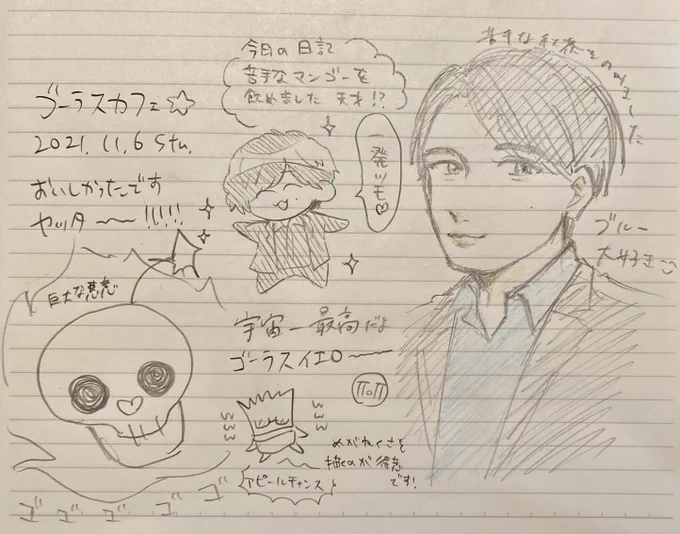 ゴーラスカフェ☆
2021.11.6 Stu.
おいしかったです
ヤッター〜!!!!!
今日の日記
苦手なマンゴーを
飲めました 天才!?
一発ツモ♡
苦手な紅茶をのみました
ブルー
大好き
巨大な悪意
宇宙一最高だよ
ゴーラスイエロー〜
めがねくさを
描くのが得意
です!
アピールチャンス
ゴ ゴ ゴ ゴ ゴ